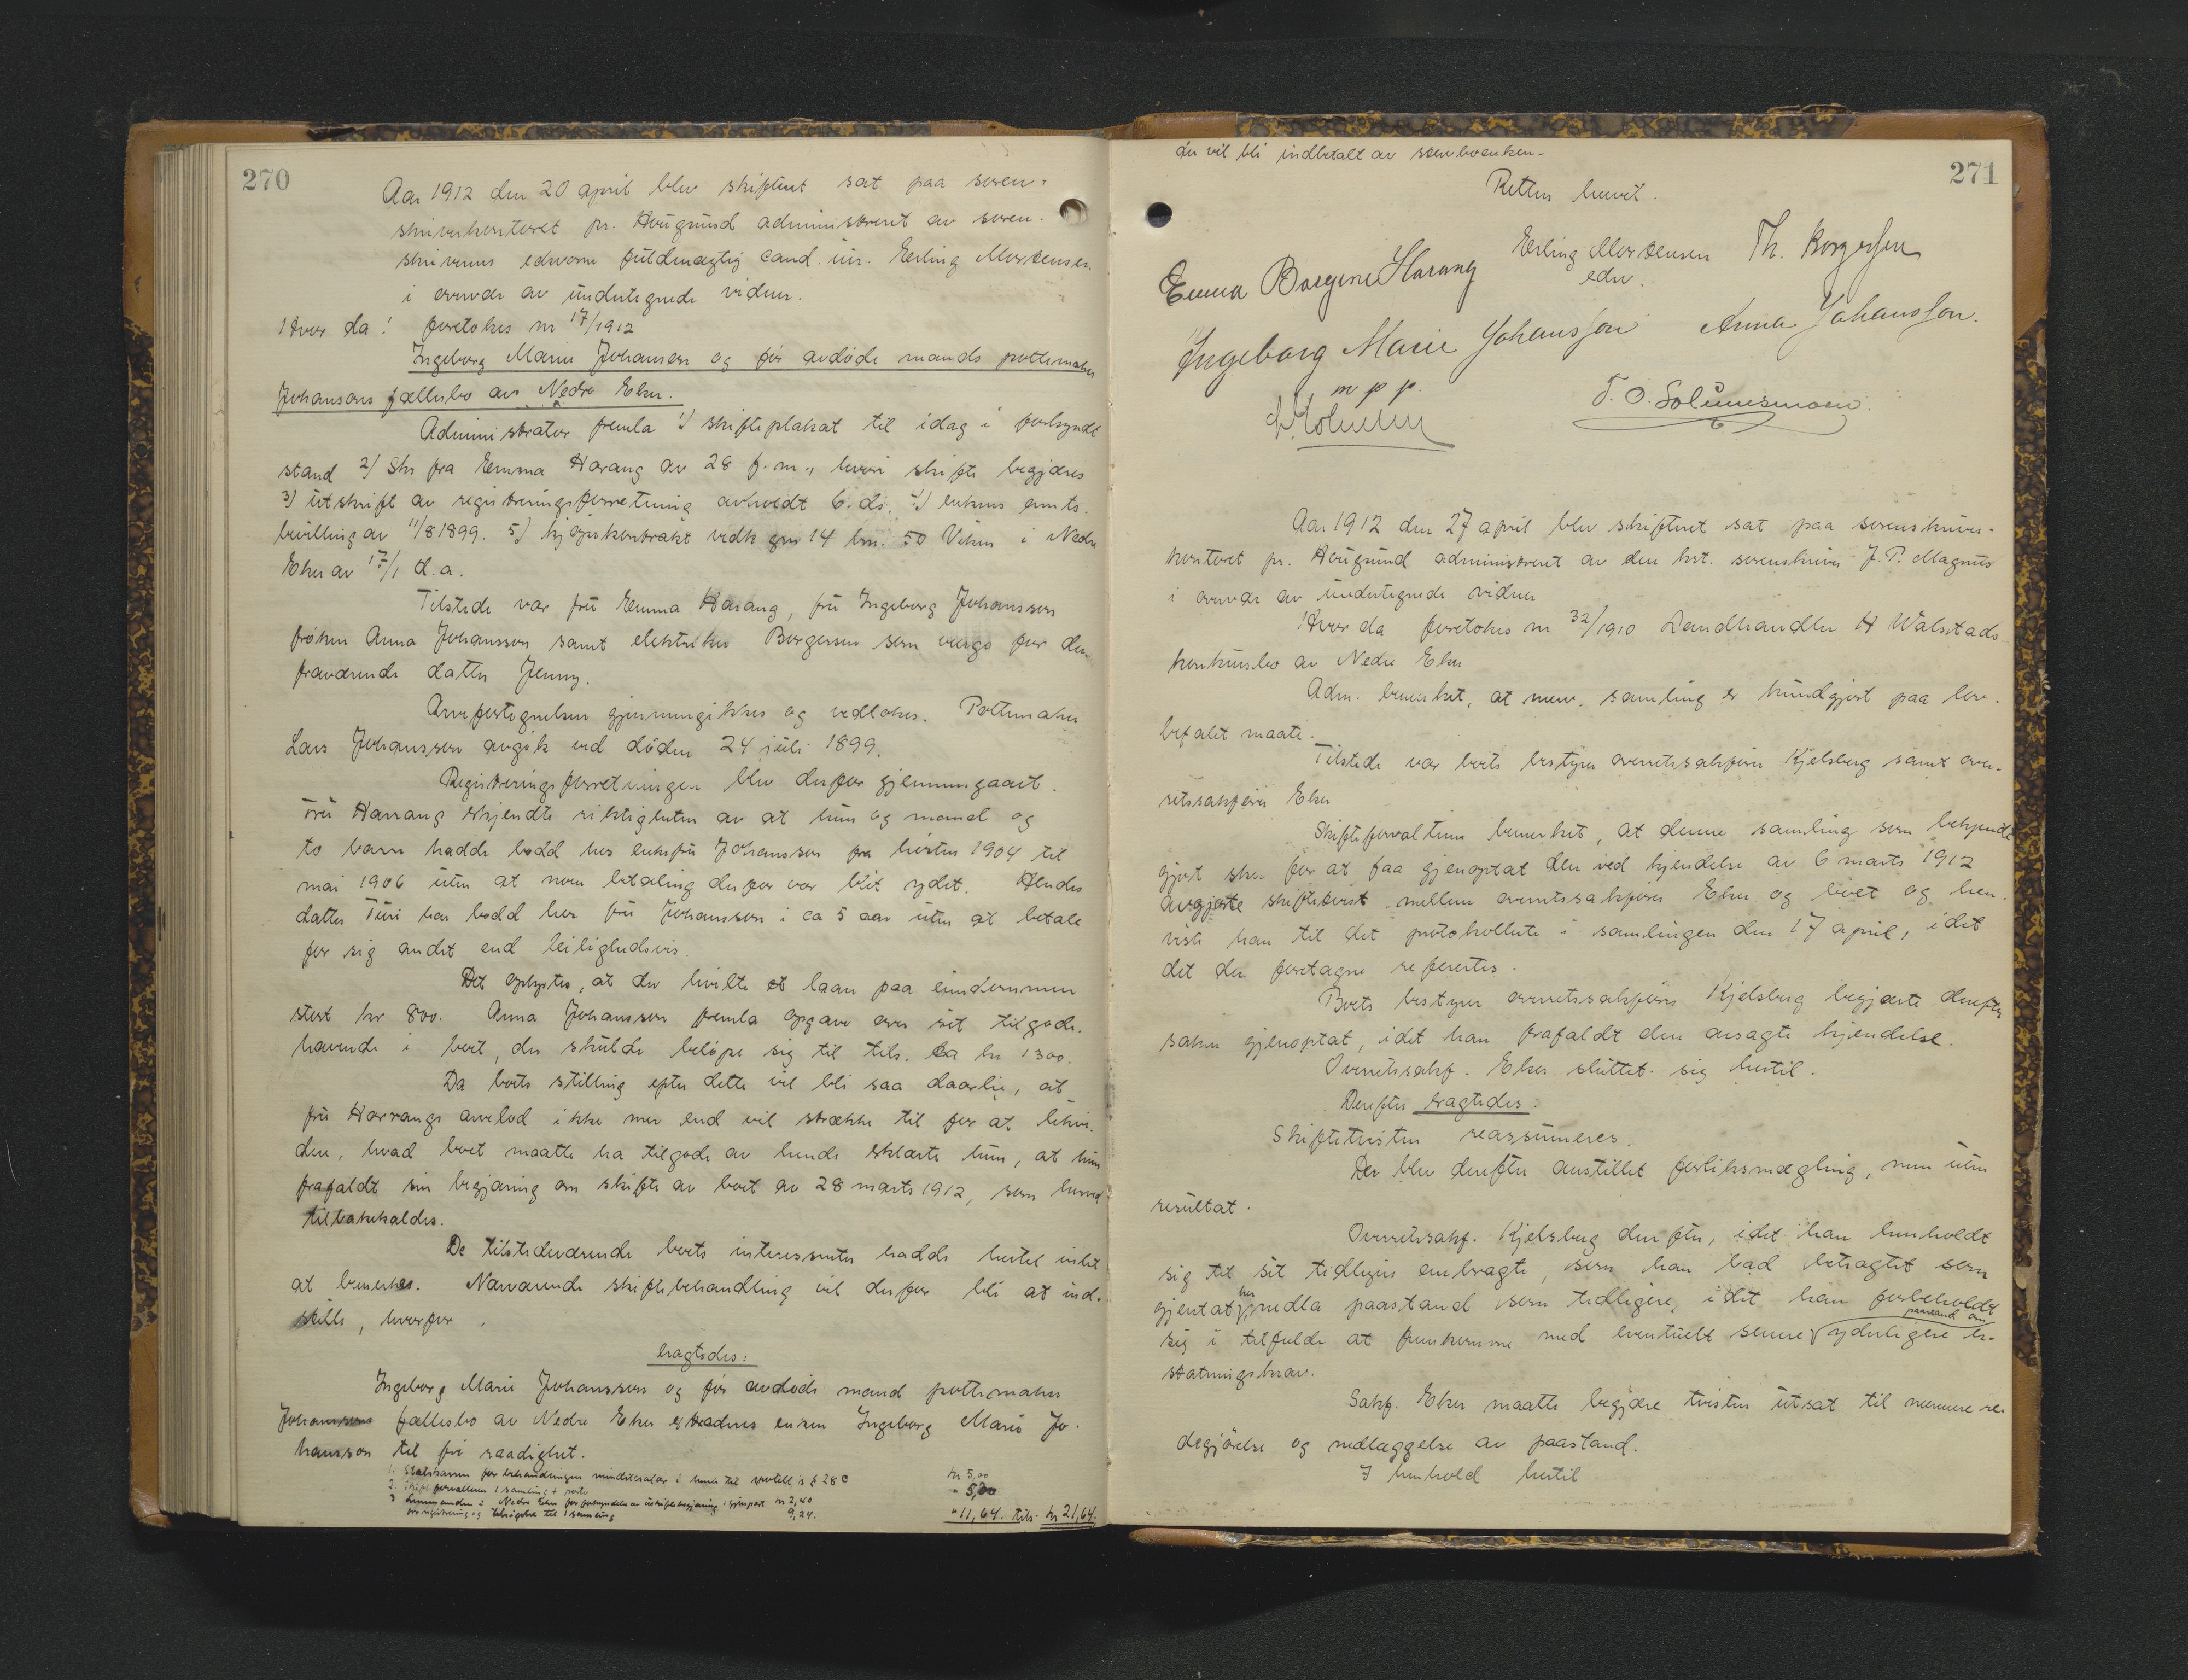 270
Aar 1912 den 20 april blev skifteret sat paa soren-
skriverkontoret pr. Hougsund administreret av soren-
skriverens edsvorne fuldmægtig cand. jur. Erling Mortensen
i overvær av undertegnede vidner.
Hvor da! foretokes nr 17/1912
Ingeborg Marie Johansson og før avdøde mands pottemaker
Johansons fællesbo av Nedre Eker.
Administrator fremla 1) skifteplakat til idag i forkyndt
stand 2) Skr fra Emma Harang av 28 f.m., hvori skifte begjæres
3) utskrift av registreringsforretning avholdt 6. ds. 4) enkens amts-
bevilling av 11/8 1899. 5) kjøpekontrakt vedk gnr 14 brn. 50 Viken i Nedre
Eker av 17/1 d.a.
Tilstede var fru Emma Harang, fru Ingeborg Johansson
frøken Anna Johansson samt elektriker Borgersen som verge for den
fraværende datter Jenny.
Arvefortegnelsen gjennemgikkes og vedtokes. Pottemaker
Lars Johansson avgik ved døden 24 juli 1899.
Registreringsforretningen blev derfor gjennemgaaet.
Fru Harrang erkjendte riktigheten av at hun og mand og
to barn hadde bodd hos enkefru Johansson fra høsten 1904 til
mai 1906 uten at noen betaling derfor var blit ydet. Hendes
datter Turi har bodd hos fru Johansson i ca 5 aar uten at betale
for sig andet end leilighedsvis.
Det oplystes, at der hvilte et laan paa eiendommen
stort kr 800. Anna Johansson fremla opgave over sit tilgode-
havende i boet, der skulde beløpe sig til tils. ca kr 1300.
Da boets stilling efter dette vil bli saa daarlig, at
fru Harrangs arvelod ikke mer end vil strække til for at likvi-
dere, hvad boet maatte ha tilgode av hende erklærte hun, at hun
frafaldt sin begjæring om skifte av boet av 28 marts 1912, som herved
tilbakekaldes.
De tilstedeværende boets interessenter hadde hertil intet
at bemerke. Nærværende skiftebehandling vil derfor bli at ind-
stille, hvorfor
eragtedes:
Ingeborg Marie Johansson og før avdøde mand pottemaker
Johanssons fællesbo av Nedre Eker extraderes enken Ingeborg Marie Jo-
hansson til fri raadighet.
1. Statskassen for behandlingen mindstesalær i henh til § 28 c kr 5,00
2. Skifteforvalteren 1 samling + porto - 5,00
3 Lensmanden i Nedre Eker for forkyndelse av kr 2,40
for registrering og tilsigelse til 1 samling 9,24. - 11,64. tils. kr 21,64.
271
der vil bli indbetalt av stervboenken.
Retten hævet.
Erling Mortensen Th. Borgersen
edsv.
Emma Borgine Harang
Ingeborg Marie Johansson Anna Johansson.
m p p.
T. O. Solumsmoen
Aar 1912 den 27 april blev skifteret sat paa sorenskriver-
kontoret pr. Hougsund administreret av den kst. sorenskriver J. P. Magnus
i overvær av undertegnede vidner
Hvor da foretokes nr 32/1910 Landhandler H Walstads
konkursbo av Nedre Eker
Adm. bemerket, at nærv. samling er kundgjort paa lov-
befalet maate.
Tilstede var boets bestyrer overretssakfører Kjelsberg samt over-
retssakfører Eker
Skifteforvalteren bemerket, at denne samling som bekjendt-
gjort sker for at faa gjenoptat den ved kjendelse av 6 marts 1912
avgjorte skiftetvist mellem overretssakfører Eker og boet og hen-
viste han til det protokollerte i samlingen den 17 april, idet
det der foretagne refereres.
Boets bestyrer overretssakfører Kjelsberg begjærte derefter
saken gjenoptat, idet han frafaldt den avsagte kjendelse.
Overretssakf. Eker sluttet sig hertil.
Derefter eragtedes:
Skiftetvisten reassumeres.
Der blev derefter anstillet forliksmægling, men uten
resultat.
Overretssakf. Kjelsberg derefter, idet han henholdt
sig til sit tidligere anbragte, som han bad betragtet som
gjentat her, nedla paastand som tidligere, idet han forbeholdt
sig i tilfælde at fremkomme med eventuelt senere paastand om yderligere er-
statningskrav.
Sakf. Eker maatte begjære tvisten utsat til nærmere re-
degjørelse og nedlæggelse av paastand.
I henhold hertil